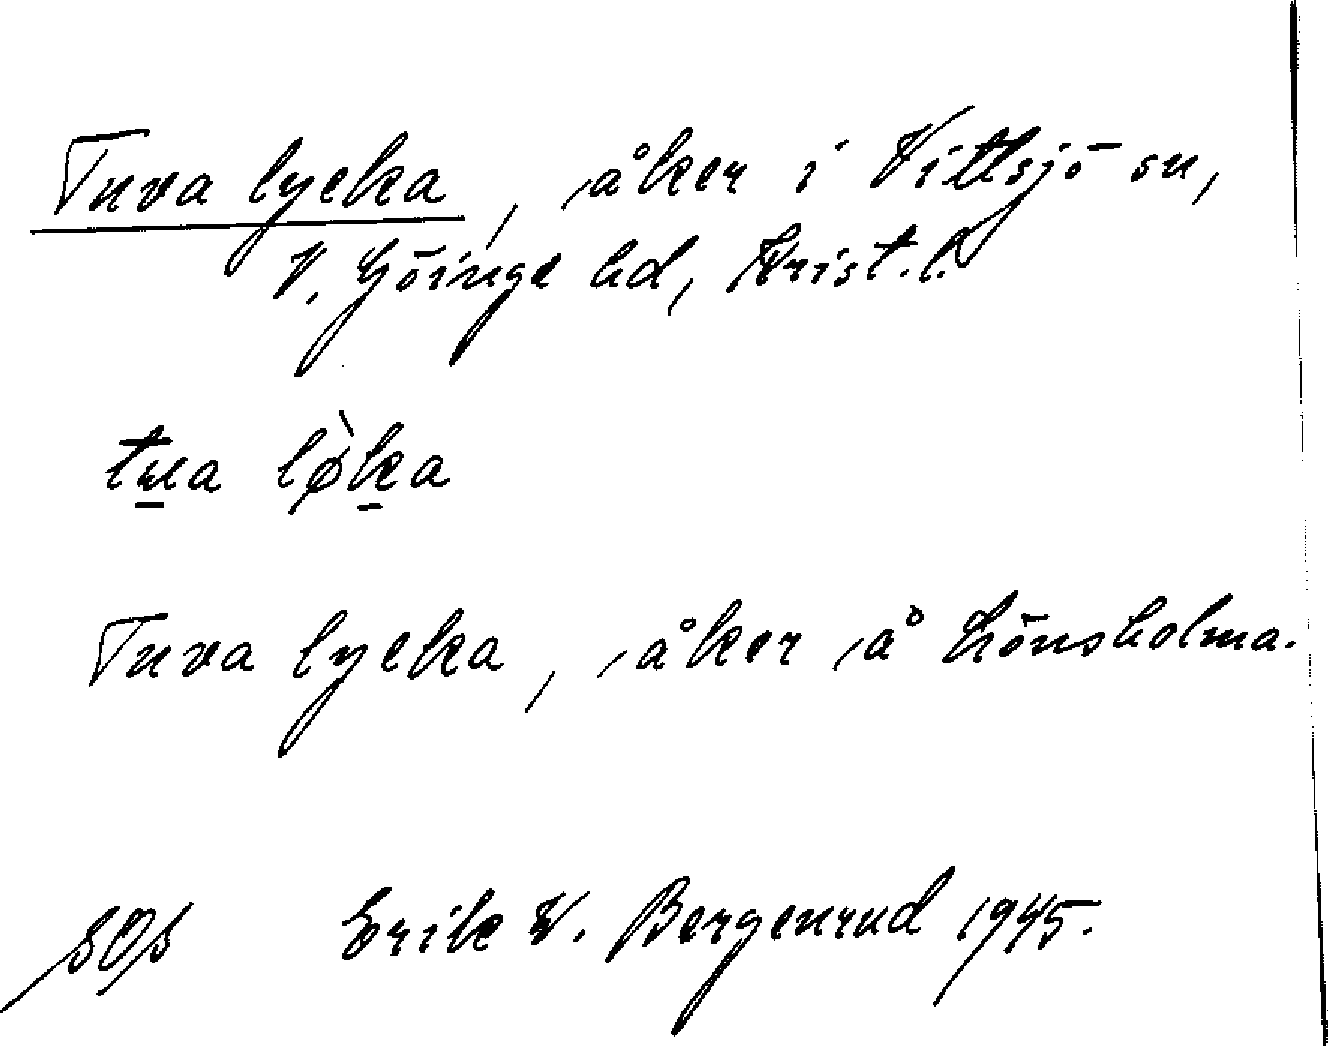 Tuva lycka, åker i Vittsjö sn,
V. Göinge hd, Krist. l.
tua lø̀ka
Tuva lycka, åker å Lönsholma.
Erik W. Bergenrud 1945.